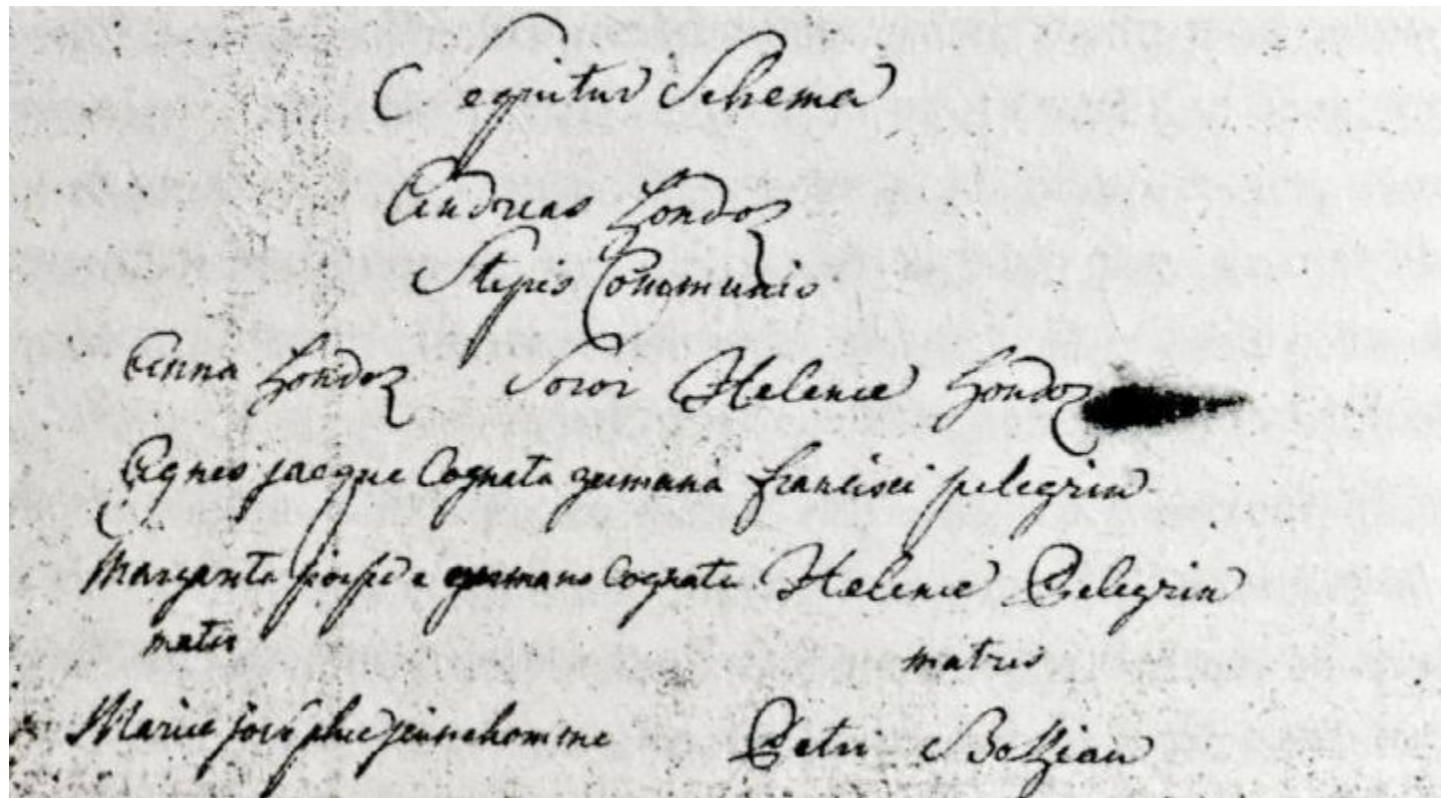 Sequitur Schema
Andreas Hondoz
Stipis Communis
Anna Hondoz Soror Helenæ Hondoz
Agnes jacque Cognata germana francisci pelegrin
Margarita e germano Cognata Helenæ Pelegrin
mater matris
Mariæ josephæ jeunehomme Petri Bozzian